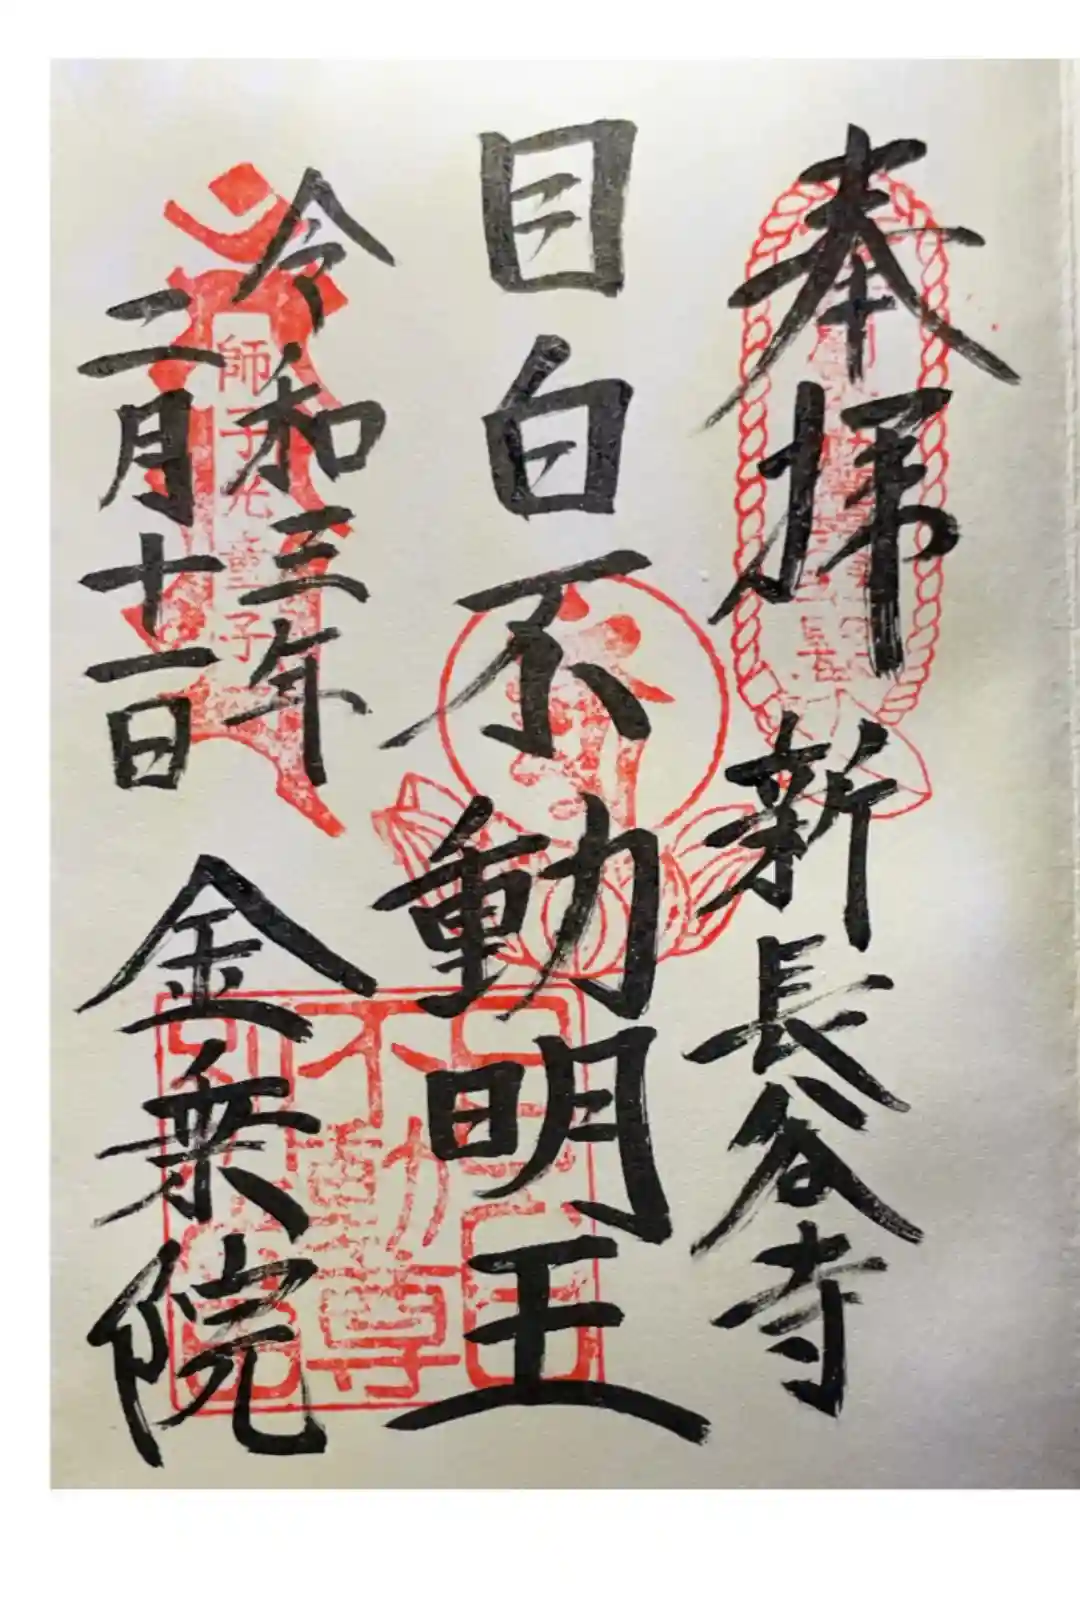 奉拝
新長谷寺
目白不動明王
令和三年
二月十一日
金乗院
師子光童子
目白不動尊